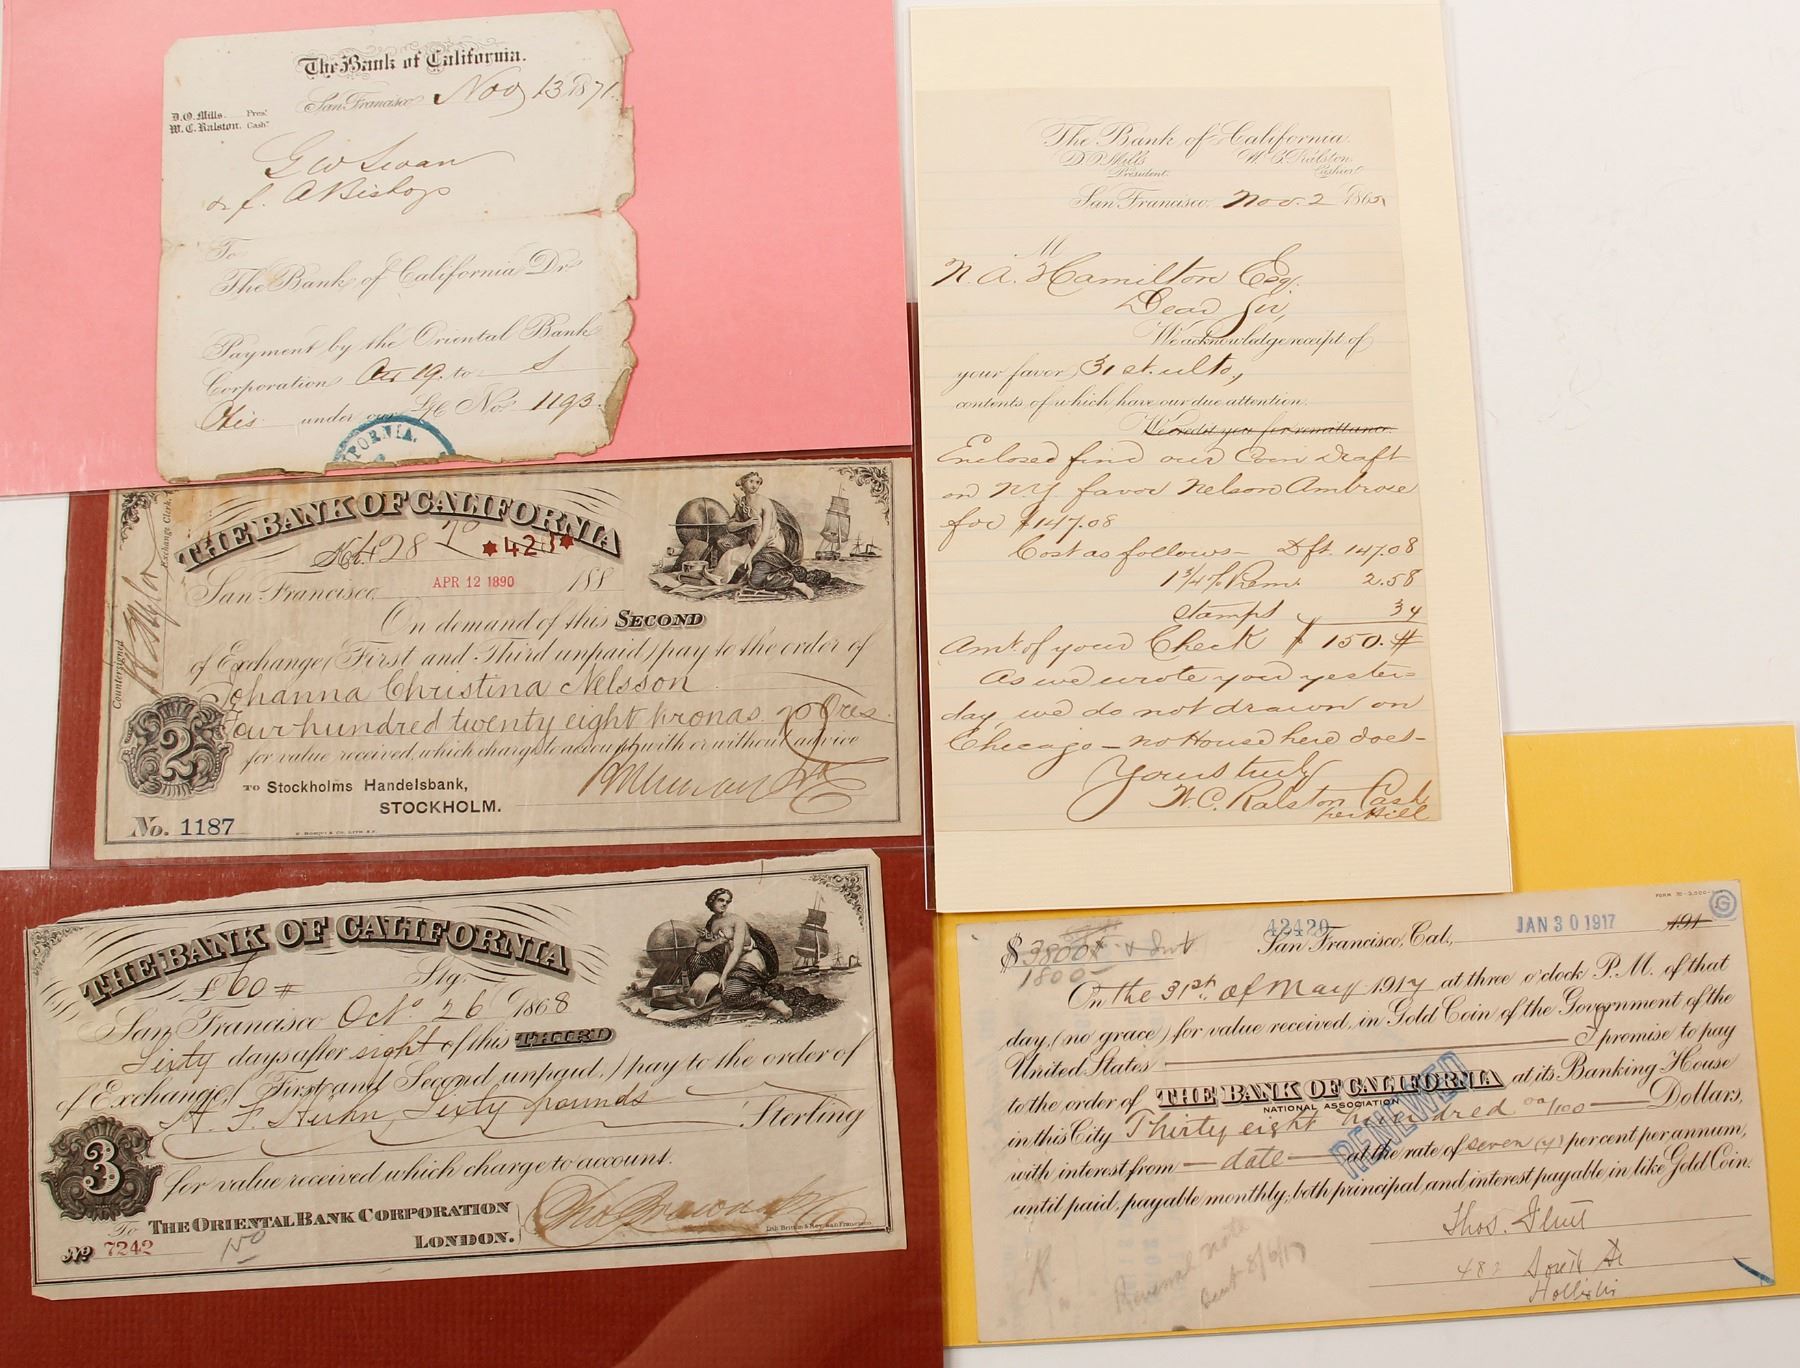 The Bank of California.
San Francisco Nov 13 1871.
D.O. Mills. Prest
W.C. Ralston. Cashr
G W Swan
A Bishop
To
The Bank of California Dr
Payment by the Oriental Bank
Corporation Oct 19. to
under our No 1193.
IFORNIA.
THE BANK OF CALIFORNIA
No. 428
San Francisco APR 12 1890 188
On demand of this SECOND
of Exchange (First and Third unpaid) pay to the order of
Johanna Christina Nelsson
Four hundred twenty eight Kronas 20 Öres
for value received, which charge to account with or without advice
TO Stockholms Handelsbank,
STOCKHOLM.
2
No. 1187
Countersigned
Exchange Clerk
THE BANK OF CALIFORNIA
£60 # Stg.
San Francisco Oct. 26 1868
Sixty days after sight of this THIRD
of Exchange, (First and Second unpaid,) pay to the order of
Sixty pounds
Sterling
for value received which charge to account.
3
To THE ORIENTAL BANK CORPORATION
LONDON.
No 7242
Lith. Britton & Rey, San Francisco.
The Bank of California
D.O. Mills W.C. Ralston
President. Cashier.
San Francisco, Nov. 2 186
M
N. A. Hamilton Esq.
Dear Sir,
We acknowledge receipt of
your favor, 31st. ulto,
contents of which have our due attention.
We credit you for remittance.
Enclosed find our Coin Draft
on N.Y. favor Nelson Ambrose
for $147.08
Cost as follows - Dft. 147.08
1 3/4 % Prem. 2.58
Stamps 34
Amt. of your Check $ 150.#
As we wrote you yester=
day, we do not drawn on
Chicago - no House here does -
Yours truly
W.C. Ralston Cash
per Hill
FORM
G
42420
$3800
1800-
San Francisco, Cal., JAN 30 1917 191
On the 31st. of May 1917 at three o'clock P.M. of that
day (no grace) for value received, in Gold Coin of the Government of the
United States I promise to pay
to the order of THE BANK OF CALIFORNIA at its Banking House
NATIONAL ASSOCIATION
in this City Thirty eight hundred 00/100 Dollars,
with interest from date at the rate of seven (7) per cent per annum,
until paid, payable monthly, both principal and interest payable in like Gold Coin.
RENEWED
Thos. Flint
482 South St
Hollister
Renewal note
8/6/17